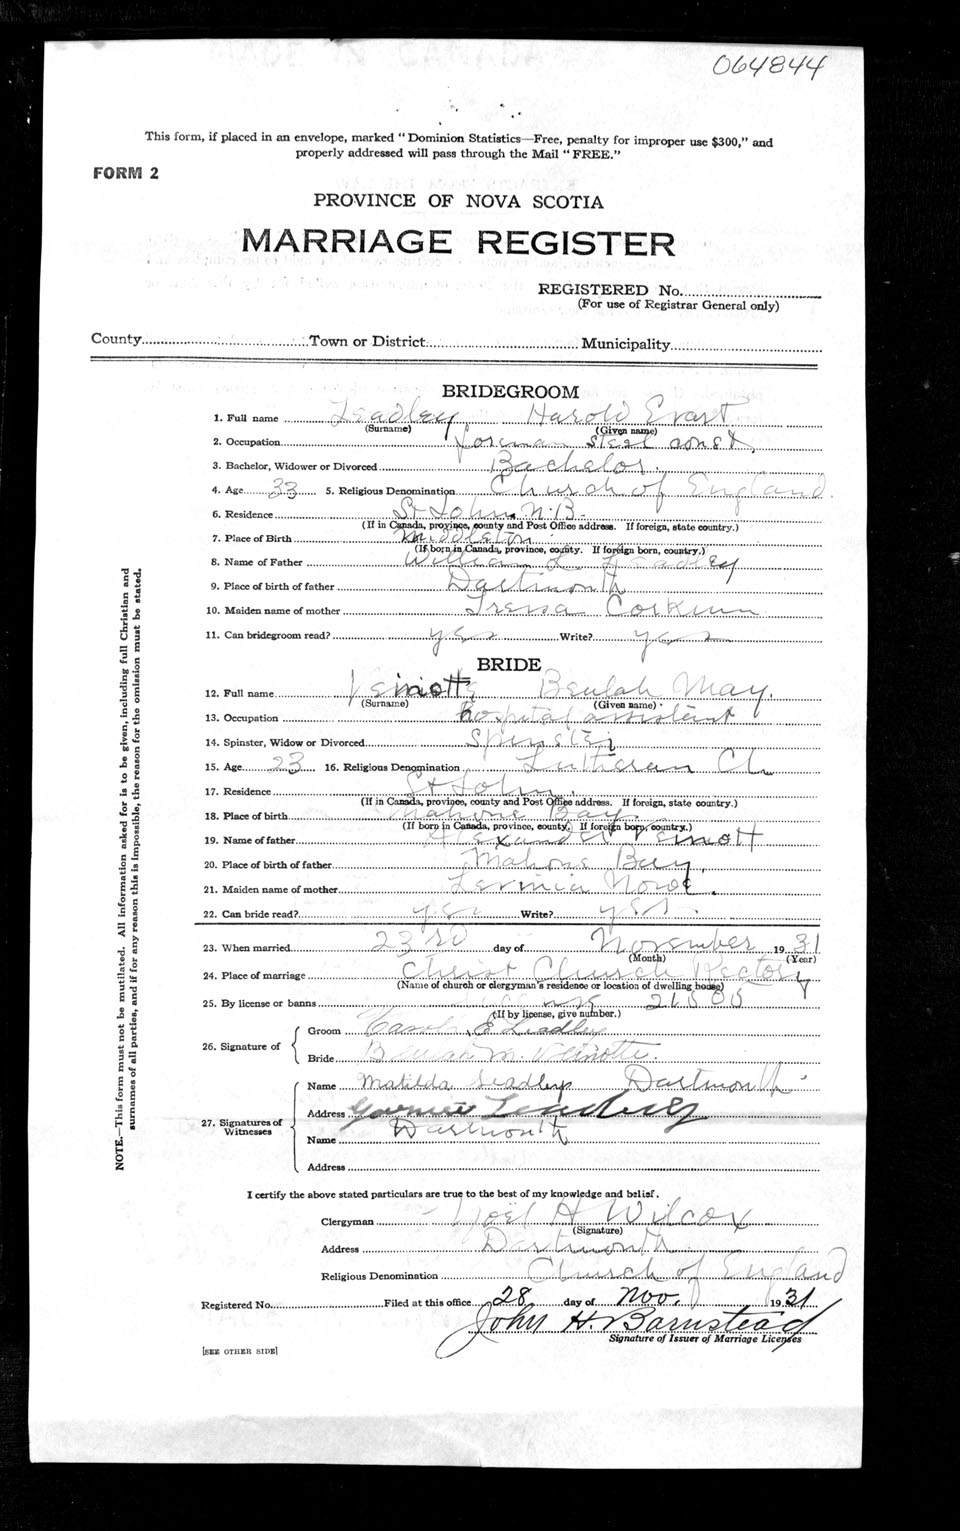 064844
This form, if placed in an envelope, marked "Dominion Statistics—Free, penalty for improper use $300," and
properly addressed will pass through the Mail "FREE."
FORM 2
PROVINCE OF NOVA SCOTIA
MARRIAGE REGISTER
REGISTERED No.
(For use of Registrar General only)
County Town or District Municipality
BRIDEGROOM
1. Full name Leadley Harold Evart
(Surname) (Given name)
2. Occupation foreman steel const.
3. Bachelor, Widower or Divorced Bachelor.
4. Age 33 5. Religious Denomination Church of England
6. Residence St John. N.B.
(If in Canada, province, county and Post Office address. If foreign, state country.)
7. Place of Birth Middleton
(If born in Canada, province, county. If foreign born, country.)
8. Name of Father William L. Leadley
9. Place of birth of father Dartmouth
10. Maiden name of mother Corkum
11. Can bridegroom read? yes Write? yes
BRIDE
12. Full name Veinotte Beulah May.
(Surname) (Given name)
13. Occupation hospital assistant
14. Spinster, Widow or Divorced Spinster
15. Age 23 16. Religious Denomination Lutheran Ch
17. Residence St John.
(If in Canada, province, county and Post Office address. If foreign, state country.)
18. Place of birth Mahone Bay.
(If born in Canada, province, county. If foreign born, country.)
19. Name of father Alexander Veinott
20. Place of birth of father Mahone Bay
21. Maiden name of mother
22. Can bride read? yes Write? yes.
23. When married 23rd day of November 1931
(Month) (Year)
24. Place of marriage Christ Church Rectory
(Name of church or clergyman's residence or location of dwelling house)
25. By license or banns license
(If by license, give number.)
26. Signature of
Groom Harold E Leadley
Bride Beulah M. Veinotte.
27. Signatures of Witnesses
Name Matilda Leadley Dartmouth
Address Leadley
Name Dartmouth
Address
I certify the above stated particulars are true to the best of my knowledge and belief.
Clergyman Noël H Wilcox
(Signature)
Address Dartmouth
Religious Denomination Church of England
Registered No. Filed at this office 28 day of Nov. 1931
John H. Barnstead
Signature of Issuer of Marriage Licenses
[SEE OTHER SIDE]
NOTE.—This form must not be mutilated. All information asked for is to be given, including full Christian and
surnames of all parties, and if for any reason this is impossible, the reason for the omission must be stated.